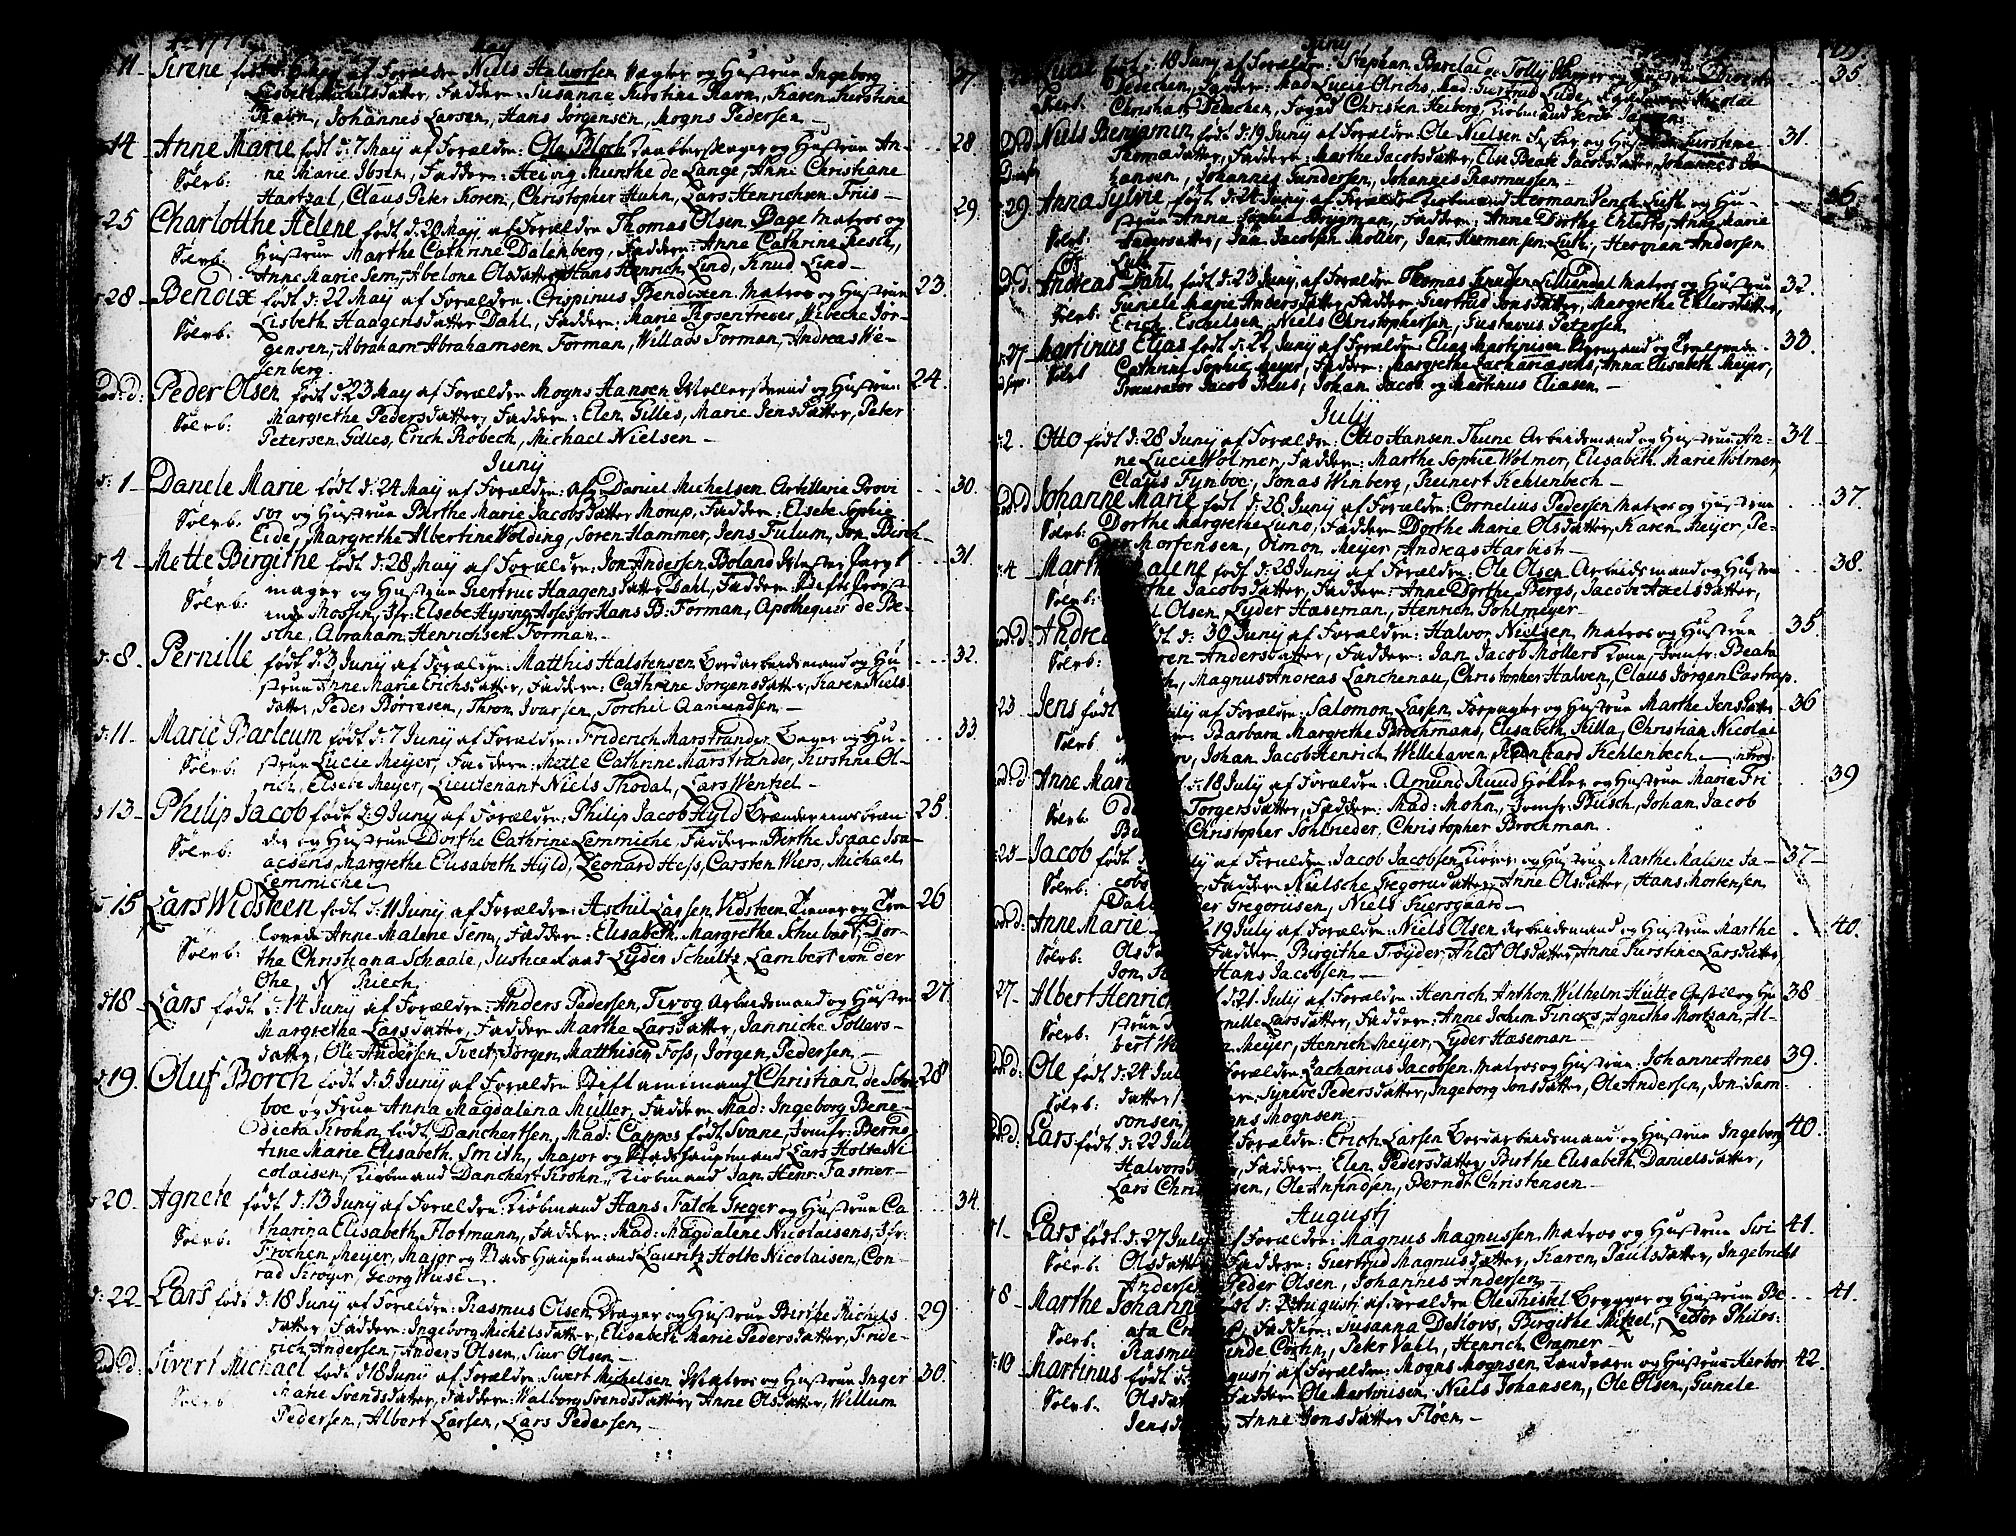 May
11 Sirene født d: 6 May af Forældre Niels Halvorsen Vægter og Hustrue Ingeborg 27.
Lisbeth Michelsdatter, Faddere: Susanne Kirstine Ravn, Karen Kirstine
Ravn, Johannes Larsen, Hans Jorgensen, Mogns Pedersen
14 Anne Marie født d: 7 May af Forældre: Ole Bloch og Hustrue An- 28
Sølvb: ne Marie Ibsen, Faddere: Hervig Munthe de Lange, Anne Christiane
Hartzal, Claus Peter Koren, Christopher Hahn, Lars Henrichsen Friis
25 Charlotthe Helene født d: 20 May af Forældre Thomas Olsen Bage Matros og 29.
Sølvb: Hustrue Marthe Cathrine Dalenberg, Faddere: Anne Cathrine Resch,
Anne Marie Sem, Abelone Olsdatter, Hans Henrich Lind, Knud Lind
28 Bendix født d: 22 May af Forældre: Crispinus Bendixen Matros og Hustrue 23.
Sølvb: Lisbeth Haagensdatter Dahl, Faddere: Marie Rosentreter, Wibeche Jor-
gensen, Abraham Abrahamsen Forman, Willads Forman, Andreas We-
senberg.
Eod: D: Peder Olsen født d 23 May af Forældre Mogns Hansen Møllersvend og Hustrue 24.
Sølvb: Margrethe Pedersdatter, Faddere: Elen Gilles, Marie Jensdatter, Peter
Petersen Gilles, Erich Robech, Michael Nielsen
Junÿ
d: 1 Danele Marie født d: 24 May af Forældre: af Daniel Michelsen Artillerie Provi 30.
Sølvb. sor og Hustrue Birthe Marie Jacobsdatter Momp, Faddere: Elsebe Sophie
Eide, Margrethe Albertine Wolding, Soren Hammer, Jens Fulum, Jon Birch
4 Mette Birgithe født d: 28 May af Forældre: Jon Andersen Boland Mester Paryk 31.
Sølvb: mager og Hustrue Giertrue Haagensdatter Dahl, Faddere:
Moosen, Jfr: Elsebe Hysing, Assessor Hans D: Forman, Apothequer de Be-
sche, Abraham Henrichsen Forman.
d: 8 Pernille født d: 3 Junÿ af Forældre: Matthis Halstensen Bordarbeidsmand og Hu 32.
strue Anne Marie Erichsdatter, Faddere: Cathrine Jorgensdatter, Karen Niels
datter, Peder Börresen, Thron Ivarsen, Torchil Aamundsen
d: 11 Marie Barleum født d: 7 Junÿ af Forældre: Friderich Marstrander Bager og Hu- 33.
Sølvb: strue Lucie Meyer, Faddere: Mette Cathrine Marstrander, Kirstine Ol-
rich, Elsebe Meyer, Lieutenant Niels Thodal, Lars Wentzel
13 Philip Jacob født d: 9 Junÿ af Forældre: Philip Jacob Hyld 25.
Sølvb: der og Hustrue Dorthe Cathrine Lemmiche, Faddere: Birthe Isaac Isa-
acsens, Margrethe Elisabeth Hyld, Leonard Hess, Carsten Wiers, Michael
Lemmiche
15 Lars Widsteen født d: 11 Junÿ af Forældre: Aschil Larsen Vidsteen Tiener og Tro 26
Sølvb: lovede Anne Malene Sem, Faddere: Elisabeth Margrethe Schubart, Dor-
the Christiana Schaale, Justice Raad Lÿder Schultz, Lambert von der
Ohe, N Riech
d 18 Lars født d: 14 Junÿ af Forældre: Anders Pedersen Tevog Arbeidsmand og Hustrue 27.
Margrethe Larsdatter, Faddere Marthe Larsdatter, Janniche Tollevs-
datter, Ole Andersen Tveit, Jörgen Matthisen Foss, Jörgen Pedersen,
19. Oluf Borch født d: 5 Junÿ af Forældre Stiftamtmand Christian de Schou- 28
boe og Frue Anna Magdalena Müller, Faddere Mad: Ingeborg Bene-
dicta Krohn født Danchertsen, Mad: Cappes født Svane, Jomfr: Bernt
tine Marie Elisabeth Smith, Major og Stadshauptmand Lars Holte Ni
colaisen, Kiöbmand Danchert Krohn, Kiöbmand Jan Henr. Fasmer
20 Agnete født d: 13 Junÿ af Forældre: Kiöbmand Hans Falch Greger og Hustrue Ca 34.
Sølvb: tharina Elisabeth Flotmann, Faddere: Mad: Magdalene Nicolaisens, Jfr:
Trochen Meyer, Major og Stads Hauptmand Lauritz Holte Nicolaisen, Con-
rad Kröyer, Georg Wiese
d: 22 Lars født d: 18 Junÿ af Forældre: Rasmus Olsen Drager og Hustrue Birthe Michels 29
datter, Faddere: Ingeborg Michelsdatter, Elisabeth Marie Pedersdatter, Fride-
rich Andersen, Anders Olsen, Siur Olsen
Eod: D: Sivert Michael født d 18 Junÿ af Forældre: Sivert Michelsen Matros og Hustrue Inger 30.
Sølvb: Marie Svendsdatter, Faddere: Walborg Svendsdatter, Anne Olsdatter, Willum
Pedersen, Albert Larsen, Lars Pedersen
Junÿ
Lucie født d: 18 Junÿ af Forældre: Stephan Barclai de Tolly og Hustrue 35
Sølvb. Dedechen, Faddere: Mad Lucie Olrichs, Mad: Giertrud Lude,
Christian Dedechen, Foged Christen Heiberg, Kiöbmand
Eod: D Niels Benjamin født d: 19 Junÿ af Forældre: Ole Nielsen Fisker og Hustrue Kirstine 31.
Thomædatter, Faddere: Marthe Jacobsdatter, Else Beate Jacobsdatter, Johannes Jo
hansen, Johannes Gundersen, Johannes Rasmussen
29 Anna Sylvie født d: 24 Junÿ af Forældre Herman Pench Lutk og Hu- 36
Sølvb: strue Anna Sophia Brygman, Faddere: Anne Dorthe Ehlerts, Anne Marie
Andersdatter, Jan Jacobsen Möller, Jan Hermensen Lutk, Herman Andersen
Lutk
Eod D. Andreas Dahl født d: 23 Junÿ af Forældre Thomas Knudsen Lilliendal Matros og Hustrue 32.
Sølvb: Gunele Marie Andersdatter, Faddere Giertrud Jonsdatter, Margrethe Ehlersdatter,
Erich Eschelsen, Niels Christophersen, Gustavus Petersen
27 Martinus Elias født d: 22 Junÿ af Forældre: Elias Martinisen og Trolovede 33.
Sølvb Cathrine Sophia Meyer, Faddere: Margrethe Zachariæsens, Anna Elisabeth Meyer,
Procurator Jacob Irgens, Johan Jacob og Martinus Eliasen.
Julÿ
2. Otto født d: 28 Junÿ af Forældre: Otto Hansen Thune Arbeidsmand og Hustrue An- 34
ne Lucie Wolmer, Faddere: Marthe Sophie Wolmer, Elisabeth Marie Wolmer,
Claus Fynboe, Jonas Winberg, Reinert Kehlenbech
Eod D Johanne Marie født d: 28 Junÿ af Forældre: Cornelius Pedersen Matros og Hustrue 37.
Sølvb: Dorthe Margrethe Lund, Faddere Dorthe Marie Olsdatter, Karen Meyer, Pe-
Mortensen, Simon Meyer, Andreas Harbist
4 Marthe Malene født d: 28 Junÿ af Forældre: Ole Olsen Arbeidsmand og Hustrue 38.
Sølvb: the Jacobsdatter, Faddere: Anne Dorthe Bergs, Jacobe Axelsdatter,
Olsen, Lyder Hæseman, Henrich Pohlmeyer
Eod: D: Andre født d: 30 Junÿ af Forældre: Halvor Nielsen Matros og Hustrue 35.
Sølvb: ren Andersdatter, Faddere: Jan Jacob Möllers Kone, Jomfr: Beata
Magnus Andreas Lanchenau, Christopher Halven, Claus Jörgen Castrup.
23 Jens født Julÿ af Forældre: Salomon Larsen Forpagter og Hustrue Marthe Jensdatter 36
Sølvb Barbara Margrethe Brochmans, Elisabeth Killa, Christian Nicolai
Johan Jacob Henrich Willehaven, Reinhard Kehlenbech introd
Eod D Anne Mar d: 18 Julÿ af Forældre: Amund Ruud Høkker og Hustrue Marie Fri 39
Sølvb. Torgersdatter, Faddere: Mad: Mohn, Jomfr: Busch, Johan Jacob
Christopher Sohlrieder, Christopher Brochman.
25 Jacob født Julÿ af Forældre: Jacob Jacobsen og Hustrue Marthe Malene Ja- 37
Sølvb: cobs Faddere Nielsche Gregoriidatter, Anne Olsdatter, Hans Mortensen
Dahl, Peder Gregoriisen, Niels Suersgaard
Eod: D: Anne Marie 19 Julÿ af Forældre: Niels Olsen Arbeidsmand og Hustrue Marthe 40.
Sølvb. Olsdatter, Faddere Birgithe Tröyder, Ahlet Olsdatter, Anne Kirstine Larsdatter,
Jon Hans Jacobsen
27 Albert Henrich d: 21 Julÿ af Forældre: Henrich Anthon Wilhelm Hütte og Hu 38
Sølvb. strue Larsdatter, Faddere: Anne Jchim Fincks, Agnethe Mortzan, Al-
bert Meyer, Henrich Meyer, Lyder Hæseman
Eod D: Ole født d: 24 Julÿ Forældre Zacharias Jacobsen Matros og Hustrue Johanne Arnes 39.
Sølvb: datter, Synneve Pedersdatter, Ingeborg Jonsdatter, Ole Andersen, Jon Sam-
sonsen, Mognsen
Eod D. Lars født d: 22 Julÿ af Forældre: Erich Larsen Bordarbeidsmand og Hustrue Ingeborg 40.
Halvorsdatter, Faddere: Elen Pedersdatter, Birthe Elisabeth Danielsdatter,
Lars Christensen, Ole Anfindsen, Berndt Christensen
Augusti
1. Lars født d: 27 Julÿ af Forældre: Magnus Magnussen Matros og Hustrue Siri 41.
Sølvb. Olsdatter, Faddere: Giertrud Magnusdatter, Karen Paulsdatter, Ingebricht
Andersen, Peder Olsen, Johannes Andersen
8 Marthe Johanne født d: 2 Augusti af Forældre Ole Thistel Brygger og Hustrue Be- 41.
Sølvb. ata Cramer, Faddere: Susanna Detlovs, Birgithe Mitzel, Lector Philos:
Rasmus Peter Vahl, Henrich Cramer
10 Martinus født d: Augusti af Forældre: Mogns Mognsen Landværn og Hustrue Herbor 42.
Sølvb. Olsdatter, Faddere Ole Martinisen, Niels Johansen, Ole Olsen, Gunele
Jensdatter, Anne Jonsdatter Flöen